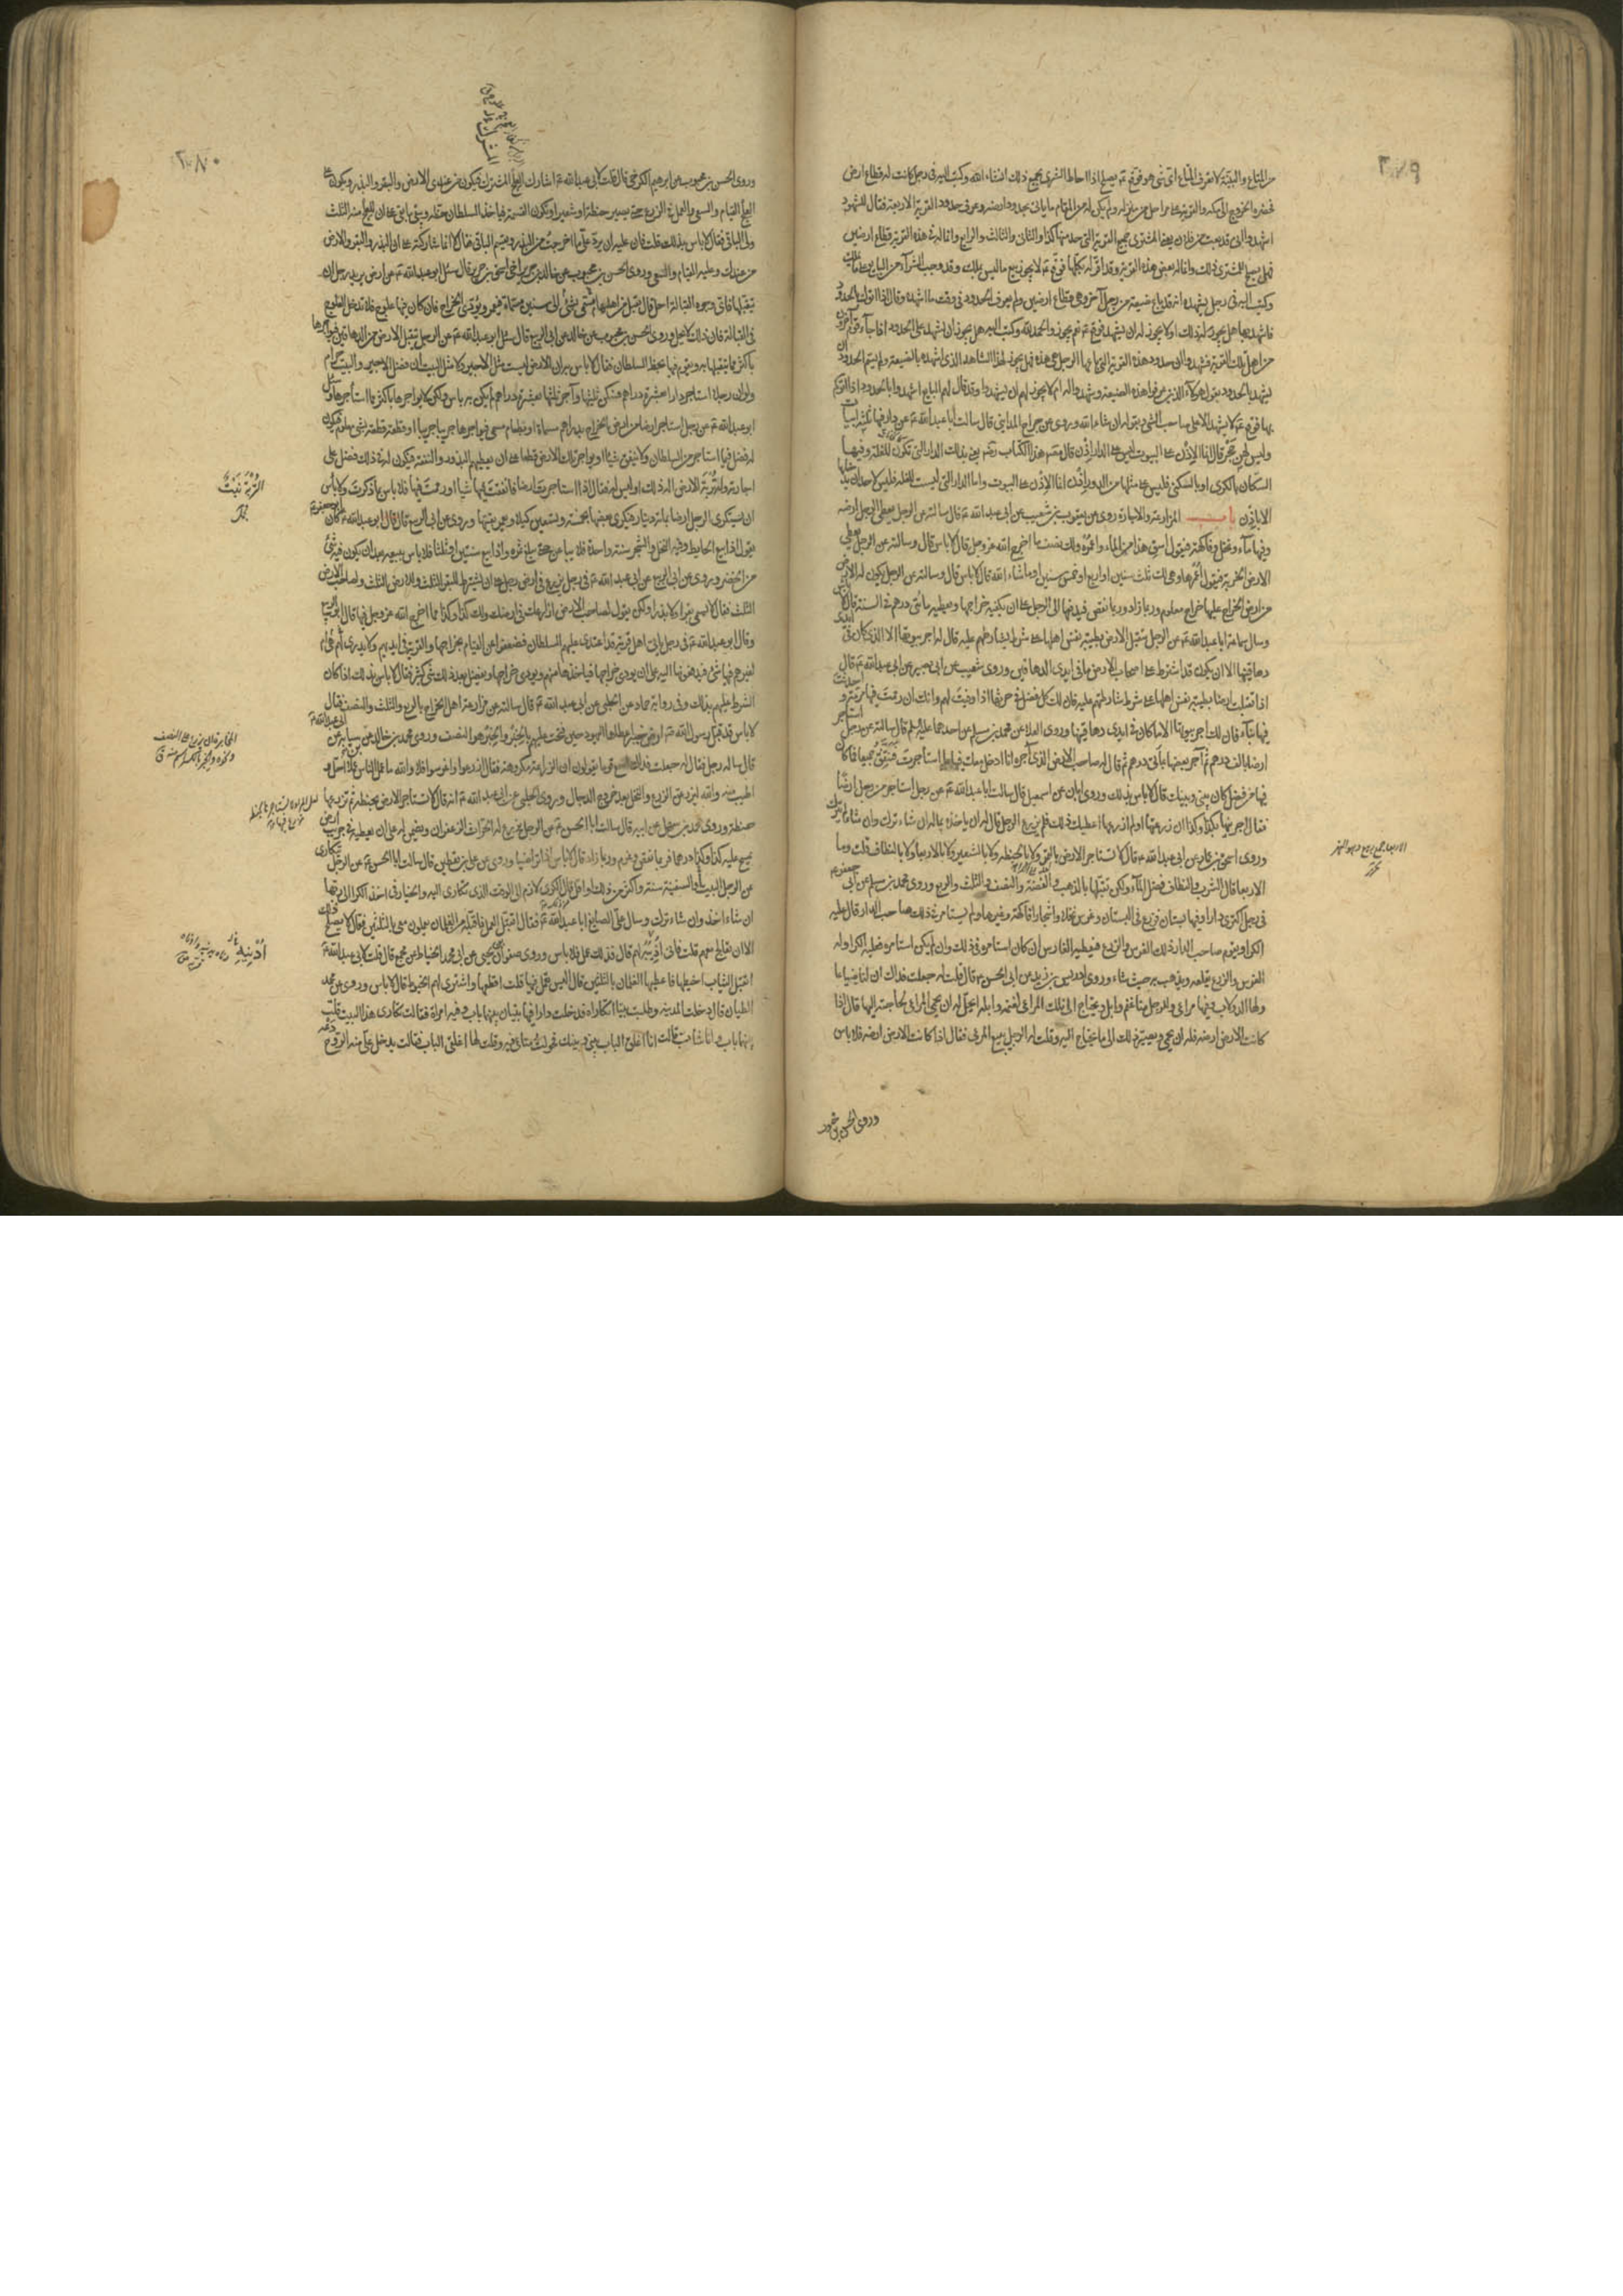 ٢٧٩
من المتاع والبقية لا نعرف المتاع اي شئ هو فوقع ع يصلح اذا احاط الشرى بجميع ذلك انشاء الله وكتب اليه في رجل كانت له قطاع ارض
فحضره الخروج الى مكة والقرية على مراحل من منزله ولم يكن له من المقام ما ياتي بحدود ارضه وعرف حدود القرية الاربعة فقال للشهود
اشهدوا اني قد بعت من فلان يعني المشتري جميع القرية التي حد منها كذا والثاني والثالث والرابع وانما له في هذه القرية قطاع ارضين
فهل يصلح للمشتري ذلك وانما له بعض هذه القرية وقد اقر له بكلها فوقع ع لا يجوز بيع ما ليس يملك وقد وجب الشراء من البايع على ما يملك
وكتب اليه في رجل يشهده انه قد باع ضيعة من رجل آخر وهي قطاع ارضين ولم يعرف الحدود في وقت ما اشهده وقال اذا اتوك بالحدود
فاشهد بها هل يجوز له ذلك او لا يجوز له ان يشهد فوقع ع نعم يجوز والحمد لله وكتب اليه هل يجوز ان يشهد على الحدود اذا جاء قوم آخرون
من اهل تلك القرية فشهدوا ان حدود هذه القرية التي باعها الرجل هي هذه فهل يجوز لهذا الشاهد الذي اشهده بالضيعة ولم يسم الحدود ان
يشهد بالحدود بقول هؤلاء الذين عرفوا هذه الضيعة وشهدوا له ام لا يجوز لهم ان يشهدوا وقد قال لهم البايع اشهدوا بالحدود اذا اتوكم
بها فوقع ع لا يشهد الا على صاحب الشئ وبقوله ان شاء الله وروي عن جراح المدايني قال سالت ابا عبد الله ع عن دار فيها ثلثة ابيات
وليس لهن حجر قال انما الاذن على البيوت ليس على الدار اذن قال مصنف هذا الكتاب رضه يعني بذلك الدار التي تكون للغلة وفيها
السكان بالكرى او بالسكنى فليس على مثلها من الدور اذن انما الاذن على البيوت واما الدار التي ليست للغلة فليس لاحد ان يدخلها
الا باذن باب المزارعة والاجارة روى عن يعقوب بن شعيب عن ابي عبد الله ع قال سالته عن الرجل يعطي الرجل ارضه
وفيها ماء ونخل وفاكهة فيقول اسق هذا من الماء واعمره ولك نصف ما اخرج الله عز وجل قال لا باس قال وسالته عن الرجل يعطي
الارض الخربة فيقول اعمرها وهي لك ثلث سنين او اربع او خمس سنين او ما شاء الله قال لا باس قال وسالته عن الرجل يكون له الارض
من ارض الخراج عليها خراج معلوم وربما زاد وربما نقص فيدفعها الى الرجل على ان يكفيه خراجها ويعطيه مائتي درهم في السنة قال لا باس
وسال سماعة ابا عبد الله ع عن الرجل يتقبل الارض بطيبة نفس اهلها على شرط يشارطهم عليه قال له اجر بيوتها الا الذي كان في ايدي
دهاقينها الا ان يكون قد اشترط على اصحاب الارض ما في ايدي الدهاقين وروى شعيب عن ابي بصير عن ابي عبد الله ع قال
اذا تقبلت ارضا بطيبة نفس اهلها على شرط شارطتهم عليه فان لك كل فضل في حرثها اذا وفيت لهم وانك ان رممت فيها مرمة واحدثت
فيها بناء فان لك اجر بيوتها الا ما كان في ايدي دهاقينها وروى العلا عن محمد بن مسلم عن احدهما عليه السلم قال سالته عن رجل استاجر
ارضا بالف درهم ثم آجر بعضها بمائتي درهم ثم قال له صاحب الارض الذي آجره انا ادخل معك فيها بما استاجرت فننفق جميعا فما كان
فيها من فضل كان بيني وبينك قال لا باس بذلك وروى ابان عن اسمعيل قال سالت ابا عبد الله ع عن رجل استاجر من رجل ارضا
فقال اجرنيها بكذا وكذا ان زرعتها او لم ازرعها اعطيك ذلك فلم يزرع الرجل قال له ان ياخذه بماله ان شاء ترك وان شاء لم يترك
وروى اسحق بن عمار عن ابي عبد الله ع قال لا تستاجر الارض بالتمر ولا بالحنطة ولا بالشعير ولا بالاربعا ولا بالنطاف قلت وما
الاربعا قال الشرب والنطاف فضل الماء ولكن تقبلها بالذهب والفضة والنصف والثلث والربع وروى محمد بن مسلم عن ابي جعفر ع
في رجل اكترى دارا وفيها بستان فزرع في البستان وغرس نخلا واشجارا وفاكهة وغيرها ولم يستامر في ذلك صاحب الدار قال عليه
الكرا ويقوم صاحب الدار ذلك الغرس والزرع فيعطيه الغارس ان كان استامره في ذلك وان لم يكن استامره فعليه الكرا وله
الغرس والزرع يقلعه ويذهب به حيث شاء وروى ادريس بن زيد عن ابي الحسن ع قال قلت له جعلت فداك ان لنا ضياعا
ولها الدولاب وفيها مراعي وللرجل منا غنم وابل ويحتاج الى تلك المراعي لغنمه وابله ايحل له ان يحمي المراعي لحاجته اليها قال اذا
كانت الارض ارضه فله ان يحمي ويصير ذلك الى ما يحتاج اليه وقلت له الرجل يبيع المرعى فقال اذا كانت الارض ارضه فلا باس
الاربعا جمع ربيع وهو النهر
وروى الحسن بن محبوب
٢٨٠
وروى الحسن بن محبوب عن ابرهيم الكرخي قال قلت لابي عبد الله ع اشارك العلج المشرك فيكون من عندي الارض والبقر والبذر ويكون على
العلج القيام والسعي والعمل في الزرع حتى يصير حنطة او شعيرا وتكون القسمة فياخذ السلطان حقه ويبقى ما بقي على ان للعلج منه الثلث
ولي الباقي فقال لا باس بذلك قلت فلي عليه ان يرد علي ما اخرجت من البذر ويقسم الباقي فقال انما شاركته على ان البذر والبقر والارض
من عندك وعليه القيام والسعي وروى الحسن بن محبوب عن خالد بن جرير اخي اسحق بن جرير قال سئل ابو عبد الله ع عن ارض يريد رجل ان
يتقبلها فاي وجوه القبالة احل قال يتقبل من اهلها بشئ مسمى الى سنين مسماة فيعمر ويؤدي الخراج فان كان فيها علوج فلا تدخل العلوج
في القبالة فان ذلك لا يحل وروى الحسن بن محبوب عن خالد عن ابي الربيع قال سئل ابو عبد الله ع عن الرجل يتقبل الارض من الدهاقين فيواجرها
باكثر مما يتقبلها به ويقوم فيها بحظ السلطان فقال لا باس به ان الارض ليست مثل الاجير ولا مثل البيت ان فضل الاجير والبيت حرام
ولو ان رجلا استاجر دارا بعشرة دراهم فسكن ثلثيها وآجر ثلثها بعشرة دراهم لم يكن به باس ولكن لا يواجرها باكثر مما استاجرها وسئل
ابو عبد الله ع عن رجل استاجر ارضا من ارض الخراج بدراهم مسماة او بطعام مسمى فيواجرها جريبا جريبا او قطعة قطعة بشئ معلوم فيكون
له فضل فيما استاجر من السلطان ولا ينفق شيئا او يواجر تلك الارض قطعا على ان يعطيهم البذر والنفقة فيكون له في ذلك فضل على
اجارته وله تربة الارض اله ذلك او ليس له فقال اذا استاجرت ارضا فانفقت فيها شيئا او رممت فيها فلا باس بما ذكرت ولا باس
ان يستكري الرجل ارضا بمائة دينار فيكري بعضها بخمسة وتسعين دينارا ويعمر بقيتها وروي عن ابي الربيع قال قال ابو عبد الله ع كان ابو جعفر ع
يقول اذا بيع الحايط وفيه النخل والشجر سنة واحدة فلا يباعن حتى تبلغ ثمرته واذا بيع سنتين او ثلثا فلا باس ببيعه بعد ان يكون فيه شئ
من الخضر وروي عن ابي الربيع عن ابي عبد الله ع في رجل يزرع في ارض رجل على ان يشترط للبقر الثلث وللبذر الثلث ولصاحب الارض
الثلث فقال لا يسمي بقرا ولا بذرا ولكن يقول لصاحب الارض ازرعك في ارضك ولك كذا وكذا مما اخرج الله عز وجل فيها قال
وقال ابو عبد الله ع في رجل اتى اهل قرية قد اعتدى عليهم السلطان فضعفوا عن القيام بخراجها والقرية في ايديهم ولا يدري لهم هي ام
لغيرهم فيها شئ فيدفعونها اليه على ان يودي خراجها فياخذها منهم ويودي خراجها ويفضل بعد ذلك شئ كثير فقال لا باس بذلك اذا كان
الشرط عليهم بذلك وفي رواية حماد عن الحلبي عن ابي عبد الله ع قال سالته عن مزارعة اهل الخراج بالربع والثلث والنصف فقال
لا باس قد قبل رسول الله ص ارض خيبر اعطاها اليهود حين فتحت عليهم بالخبر والخبر هو النصف وروى محمد بن خالد عن ابن سيابة عن ابي عبد الله ع
قال ساله رجل فقال له جعلت فداك اسمع قوما يقولون ان الزراعة مكروهة فقال ازرعوا واغرسوا فلا والله ما عمل الناس عملا احل ولا
اطيب منه والله ليزرعن الزرع والنخل بعد خروج الدجال وروى الحلبي عن ابي عبد الله ع انه قال لا تستاجر الارض بحنطة ثم تزرعها
حنطة وروى محمد بن سهل عن ابيه قال سالت ابا الحسن ع عن الرجل يزرع له الحراث الزعفران ويضمن له على ان يعطيه في كل جريب ارض
يمسح عليه كذا وكذا درهما فربما نقص وغرم وربما زاد قال لا باس اذا تراضيا وروي عن علي بن يقطين قال سالت ابا الحسن ع عن الرجل يتكارى
من الرجل البيت والسفينة سنة واكثر من ذلك او اقل قال الكرى لازم الى الوقت الذي تكارى اليه والخيار في اخذ الكرا الى ربها
ان شاء اخذ وان شاء ترك وسال علي الصايغ ابا عبد الله ع فقال اتقبل العمل فاقبله من الغلمان يعملون معي بالثلثين فقال لا يصلح ذلك
الا ان تعالج معهم قلت فاني اذيبه لهم قال فذلك عمل فلا باس وروى صفوان بن يحيى عن ابي محمد الخياط عن مجمع قال قلت لابي عبد الله ع
اتقبل الثياب اخيطها فاعطيها الغلمان بالثلثين قال اليس تعمل فيها قلت اقطعها واشتري لهم الخيوط قال لا باس وروي عن محمد
الطيان قال دخلت المدينة وطلبت بيتا اتكاراه فدخلت دارا فيها بيتان بينهما باب وفيه امراة فقالت تكارى هذا البيت قلت
بينهما باب وانا شاب قالت انا اغلق الباب بيني وبينك فحولت متاعي فيه وقلت لها اغلقي الباب فقالت يدخل علي منه الروح دعه